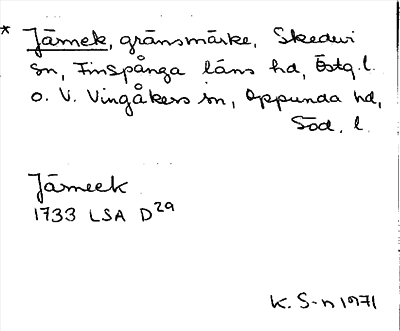 * Järnek, gränsmärke, Skedevi
sn, Finspånga läns hd, Östg. l.
o. V. Vingåkers sn, Oppunda hd,
Söd. l.
Järneek
1733 LSA D29
K. S-n 1971